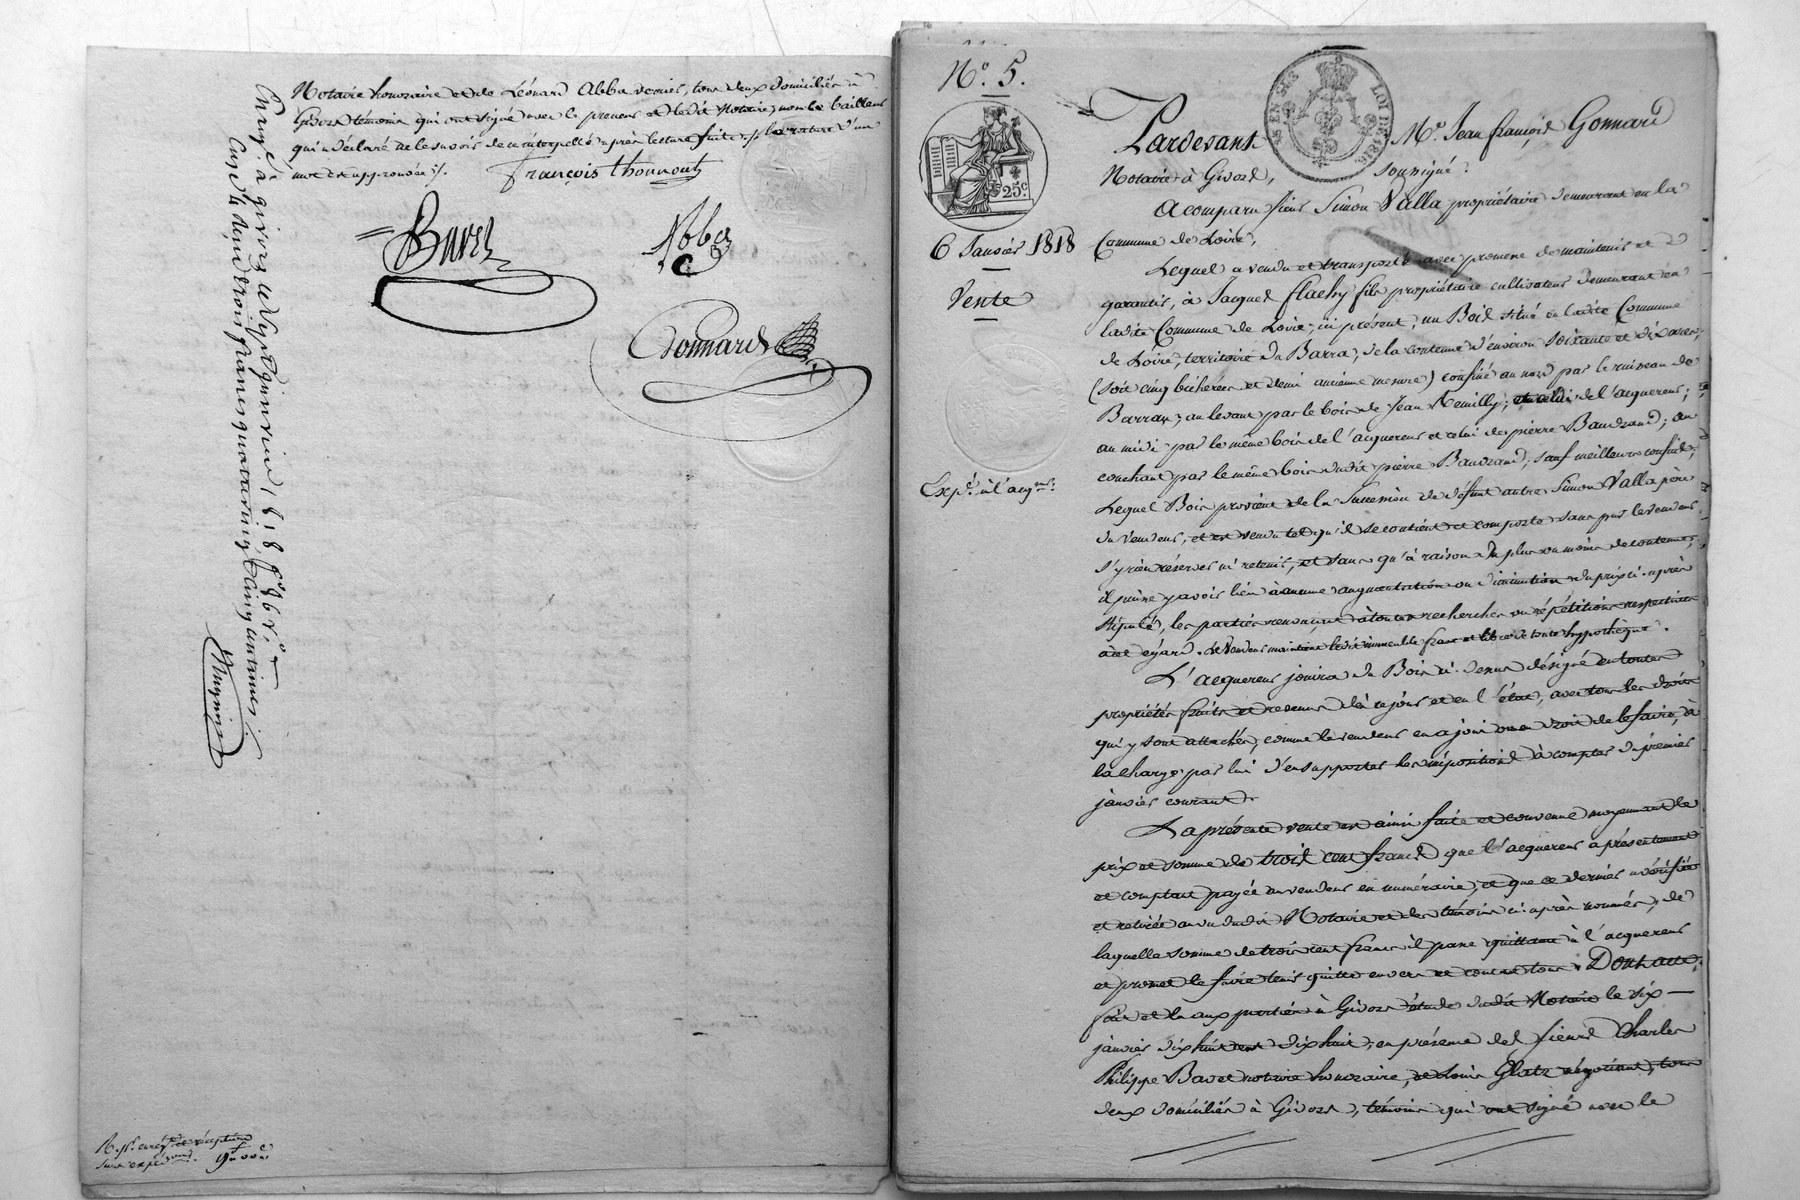 Notaire honoraire et de Léonard Abba verrier, tous deux domiciliés à
Givors témoins qui ont signé avec le preneur et ledit Notaire, non le bailleur
qui a déclaré ne le savoir de ce interpellé après lecture faite ./. la rature d'un
mot est approuvée ./.
François thonnout
Bavet
Abba
Gonnard
Enregé à givors le
Cinq centimes
Nº. 5.
25c.
6 Janvier 1818
Vente
Expé. à l'acqr.
LOI DE 1816
Pardevant Me. Jean françois Gonnard
Notaire à Givors, soussigné :
A comparu sieur Simon Valla propriétaire demeurant en la
Commune de Loire,
Lequel a vendu et transporté avec promesse de maintenir et
garantir, à Jacques flachy fils propriétaire cultivateur demeurant en
ladite Commune de Loire, ici présent, un Bois situé en ladite Commune
de Loire, territoire du Barra, de la contenue d'environ soixante et dix ares,
(soit cinq bicherées et demi ancienne mesure) confiné au nord par le ruisseau de
Barran, au levant par le bois de Jean Remilly; et celui de l'acquereur;
au midi par le même bois de l'acquereur et celui de pierre Baudrand; au
couchant par le même bois dudit pierre Baudrand; sauf meilleurs confins;
Lequel Bois provient de la succession de défunt autre Simon Valla père
du vendeur, et est vendu tel qu'il se contient et comporte sans par le vendeur
s'y rien réserver ni retenir, et sans qu'à raison du plus ou moins de contenue,
il puisse y avoir lieu à aucune augmentation ou diminution du prix ci-après
stipulé, les parties renonçant à toutes recherches ou répétitions respectives
à cet égard. Le Vendeur maintient ledit immeuble franc et libre de toute hypothèque.
L'acquereur jouira du Bois ci-dessus désigné en toutes
propriétés fruits et revenus dès ce jour et en l'état, avec tous les droits
qui y sont attachés, comme le vendeur en a joui ou eu droit de le faire, à
la charge par lui d'en supporter les impositions à compter du premier
janvier courant.
La présente vente est ainsi faite et convenue moyennant le
prix et somme de trois cent francs que l'acquereur a présentement
et comptant payée au vendeur en numéraire, et que ce dernier a vérifiée
et retirée au vu dudit Notaire et des témoins ci-après nommés, de
laquelle somme de trois cent francs il passe quittance à l'acquereur
et promet le faire tenir quitte envers et contre tous. Dont acte,
fait et lu aux parties à Givors étude dudit Notaire le six
janvier dix huit cent dix huit, en présence des sieurs Charles
Philippe Bavet notaire honoraire, et Louis Glatz négociant, tous
deux domiciliés à Givors, témoins qui ont signé avec le